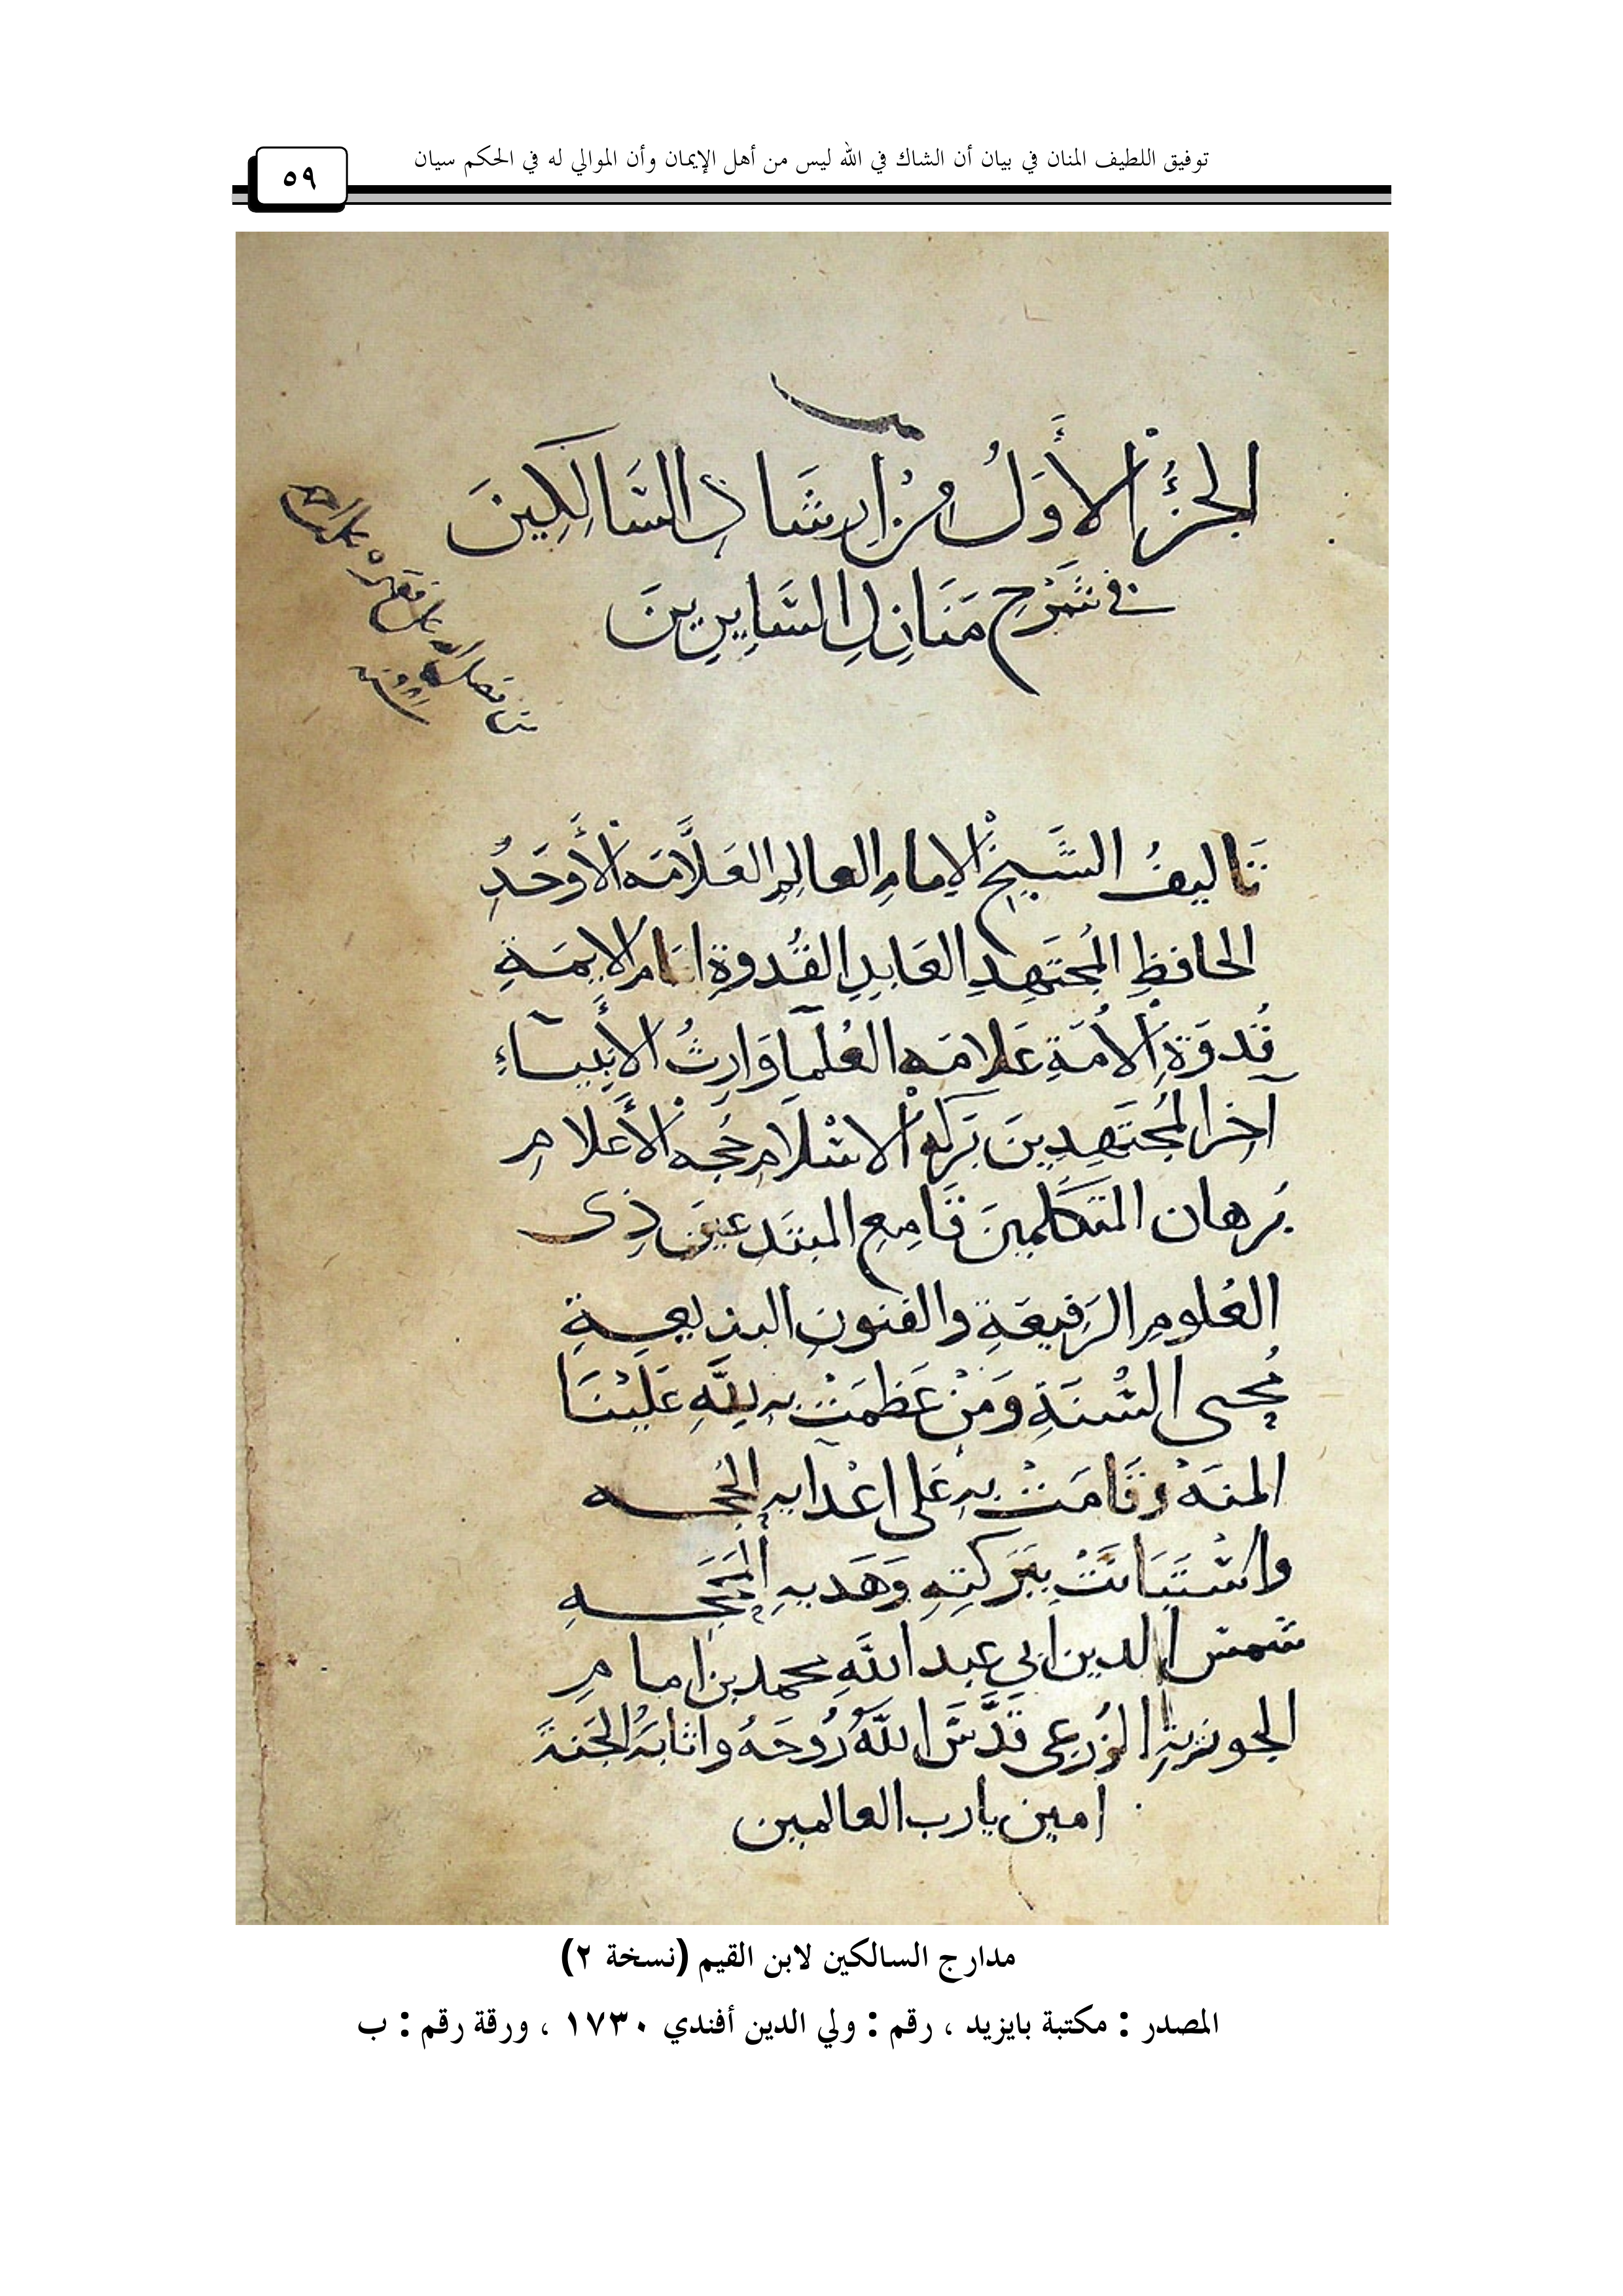 توفيق اللطيف المنان في بيان أن الشاك في الله ليس من أهل الإيمان وأن الموالي له في الحكم سيان
٥٩
الجُزْءُ الأَوَّلُ مِنْ إِرشَادِ السَّالِكِينَ
في شَرْحِ مَنَازِلِ السَّايِرِينَ
تَاليفُ الشَّيخِ الإمامِ العالِمِ العَلَّامَه الأَوحَدِ
الحافظِ المُجتَهِدِ العَابِدِ القُدوةِ امَام الايمَةِ
قُدوَةِ الأُمّةِ عَلامَه العُلَمَا وَارِثُ الأَنبيَاءِ
آخِر المُجتَهِدِينَ بَرَكه الاسْلَامِ حُجه الأَعلام
بُرهان المتَكَلمينَ قَامِعِ المبتَدعين ذِى
العُلومِ الرَفِيعَةِ والفنونِ البديعةِ
مُحيى السُّنَةِ وَمَنْ عَظمَتْ به لِلَّهِ عَلَيْنَا
المنَه وقَامَتْ بهِ عَلى اعْدايه الحُجه
واسْتَبَانَتْ بِبَرَكتِهِ وَهَديهِ المَحَجه
شمس الدين ابي عبد اللَّهِ محمد بن امام
الجوزيةِ الزُرعي قَدَّسَ اللَّهُ رُوحَهُ واثابَهُ الجَنةَ
امين يارب العالمين
مدارج السالكين لابن القيم (نسخة ٢)
المصدر : مكتبة بايزيد ، رقم : ولي الدين أفندي ١٧٣٠ ، ورقة رقم : ب